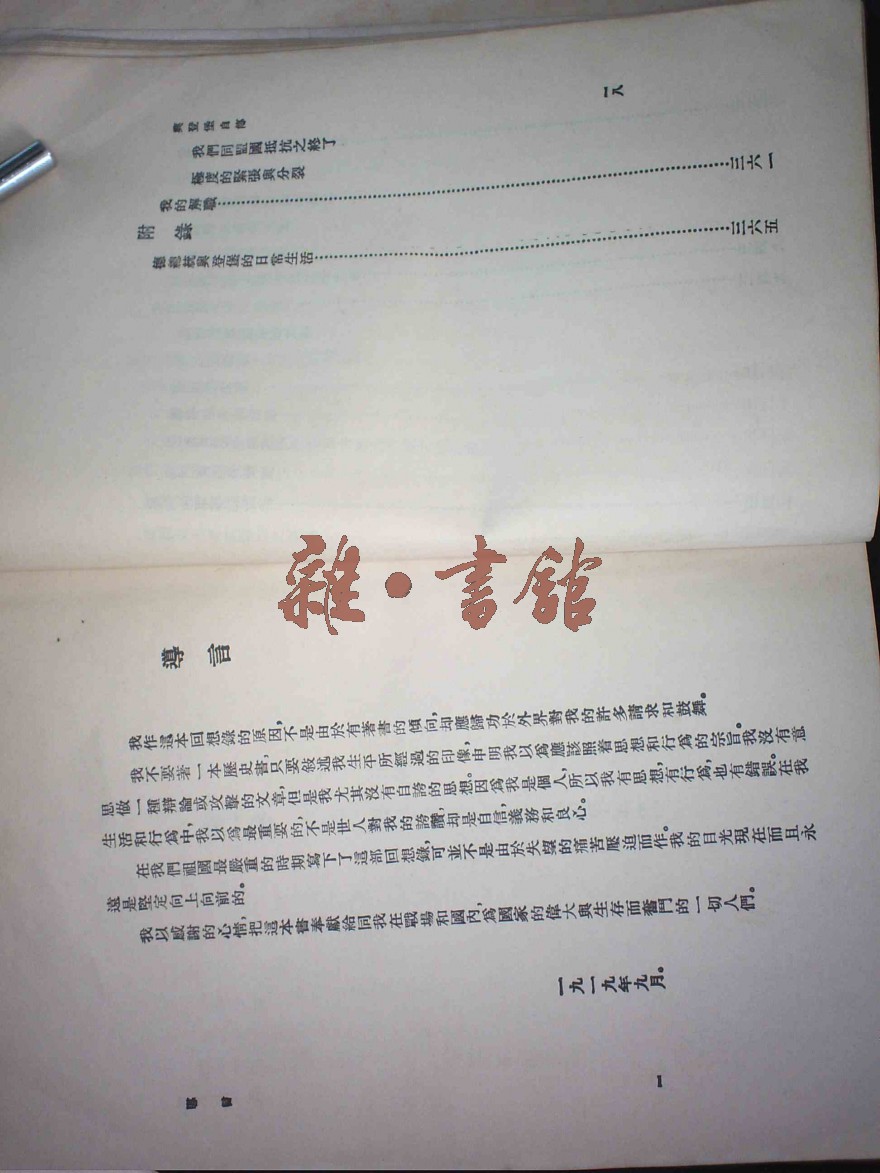 興登堡自傳
一八
我們同盟國抵抗之終了
極度的緊張與分裂
我的解職……三六一
附錄
德總統興登堡的日常生活……三六五
雜·書館
導言
我作這本回想錄的原因,不是由於有著書的傾向,却應歸功於外界對我的許多請求和鼓舞。
我不要著一本歷史書,只要敘述我生平所經過的印像,申明我以為應該照着思想和行為的宗旨。我沒有意
思做一種辯論或攻擊的文章,但是我尤其沒有自誇的思想。因為我是個人,所以我有思想,有行為,也有錯誤。在我
生活和行為中,我以為最重要的,不是世人對我的誇讚,却是自信,義務和良心。
在我們祖國最嚴重的時期寫下了這部回想錄,可並不是由於失望的痛苦壓迫而作。我的目光現在而且永
遠是堅定向上向前的。
我以感謝的心情,把這本書奉獻給同我在戰場和國內,為國家的偉大與生存而奮鬥的一切人們。
一九一九年九月。
導言
一